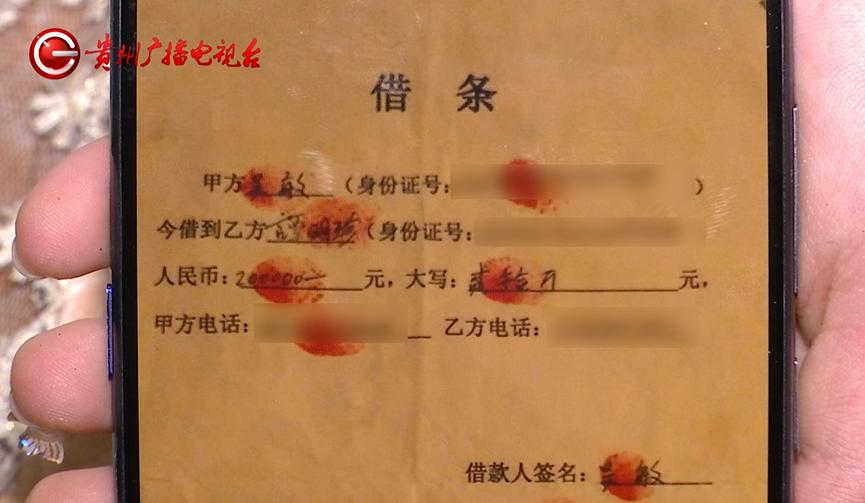 贵州广播电视台
借 条
甲方吴敏（身份证号：）
今借到乙方明珍（身份证号：
人民币：200000元，大写：贰拾万元，
甲方电话： 乙方电话：
借款人签名：吴敏